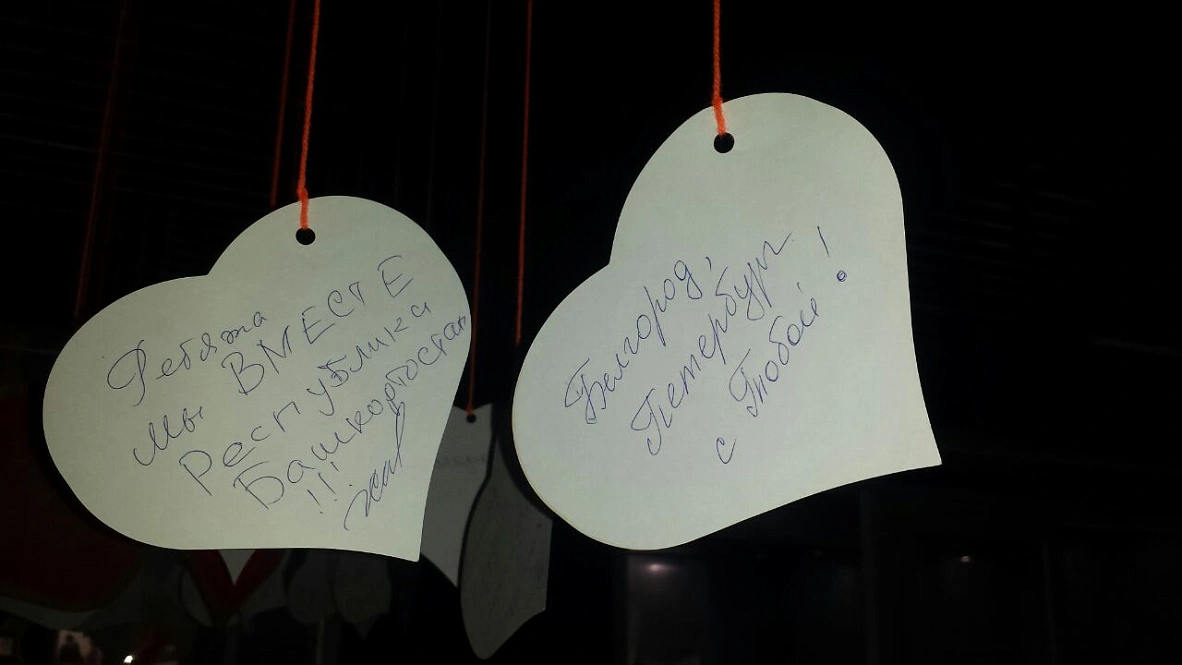 Ребята
мы ВМЕСТЕ
Республика
Башкортостан
!!!
Белгород,
Петербург
с Тобой!